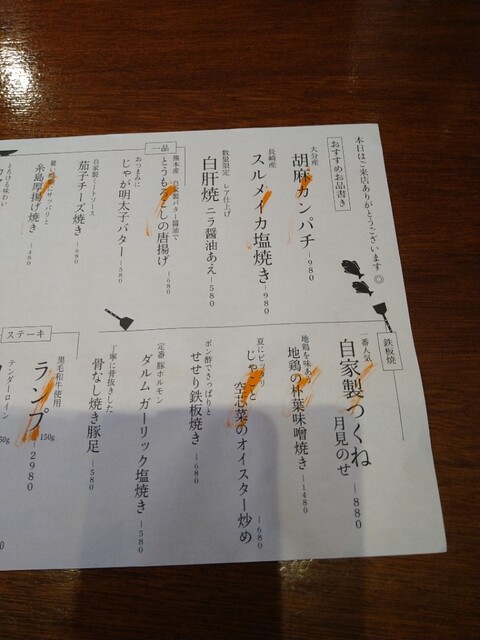 本日はご来店ありがとうございます◎
おすすめお品書き
大分産
胡麻カンパチ -980
長崎産
スルメイカ塩焼き -980
数量限定 レア仕上げ
白肝焼 ニラ醤油あえ -580
一品
熊本産 自家製バター醤油で
とうもろこしの唐揚げ -680
おつまみに
じゃが明太子バター -580
自家製ミートソース
茄子チーズ焼き -480
サッパリと
糸島厚揚げ焼き -480
とろける味わい
鉄板焼
一番人気
自家製つくね 月見のせ -880
地鶏を味わう
地鶏の朴葉味噌焼き -1480
夏にピッタリ
じゃこと空芯菜のオイスター炒め -680
ポン酢でさっぱりと
せせり鉄板焼き -680
定番 豚ホルモン
ダルム ガーリック塩焼き -580
丁寧に骨抜きした
骨なし焼き豚足 -580
ステーキ
黒毛和牛使用
ランプ 150g -2980
テンダーロイン
150g